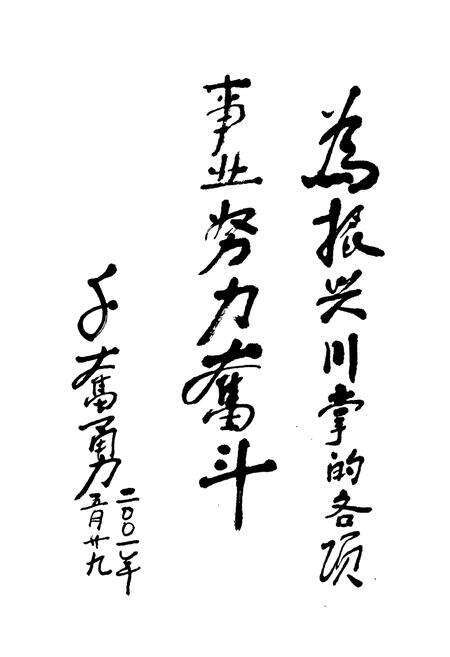 為振兴川掌的各项
事业努力奮斗
千奮勇
二〇〇一年
五月廿九